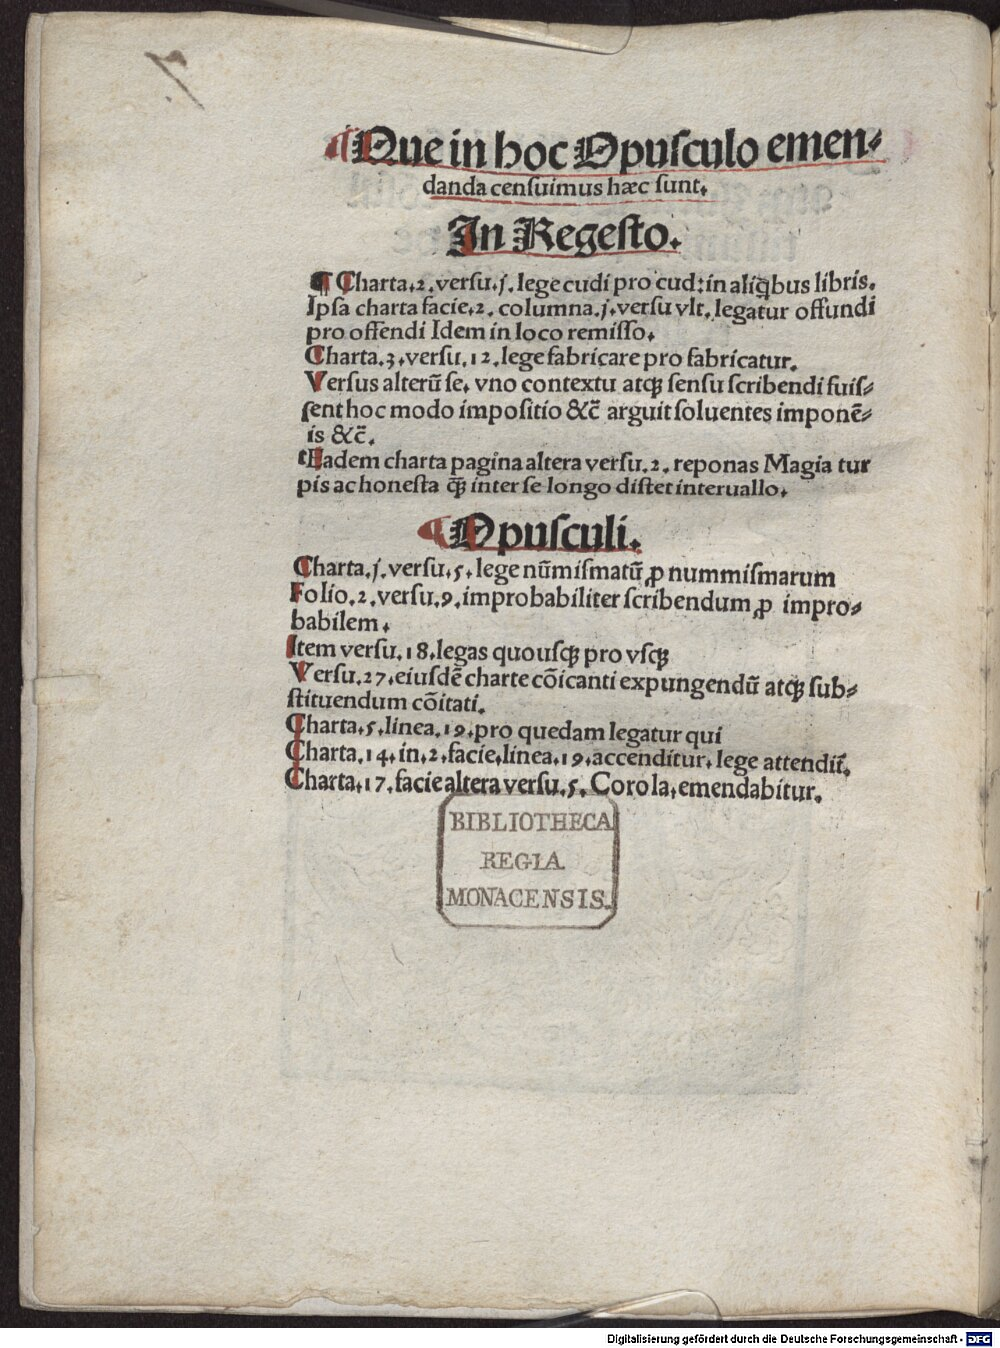 ¶Que in hoc Opuſculo emen⸗
danda cenſuimus hæc ſunt.
In Regeſto.
¶ Charta.2. verſu.j. lege cudi pro cud: in aliq̄bus libris.
Ipſa charta facie.2. columna.j. verſu vlt. legatur offundi
pro offendi Idem in loco remiſſo.
Charta.3. verſu.12. lege fabricare pro fabricatur.
Verſus alterū ſe. vno contextu atqꝫ ſenſu ſcribendi fuiſ⸗
ſent hoc modo impoſitio &c̄ arguit ſoluentes imponē⸗
is &c̄.
¶Eadem charta pagina altera verſu.2. reponas Magia tur
pis ac honeſta qꝫ̄ inter ſe longo diſtet interuallo.
¶Opuſculi.
Charta.j. verſu.5. lege nūmiſmatū ꝓ nummiſmarum
Folio.2. verſu.9. improbabiliter ſcribendum ꝓ impro⸗
babilem.
Item verſu.18. legas quouſqꝫ pro vſqꝫ
Verſu.27. eiuſdē charte cōicanti expungendū atqꝫ ſub⸗
ſtituendum cōitati.
Charta.5. linea.19. pro quedam legatur qui
Charta.14. in.2. facie. linea.19. accenditur. lege attendit̄.
Charta.17. facie altera verſu.5. Corola. emendabitur.
BIBLIOTHECA
REGIA
MONACENSIS.
Digitalisierung gefördert durch die Deutsche Forschungsgemeinschaft - DFG